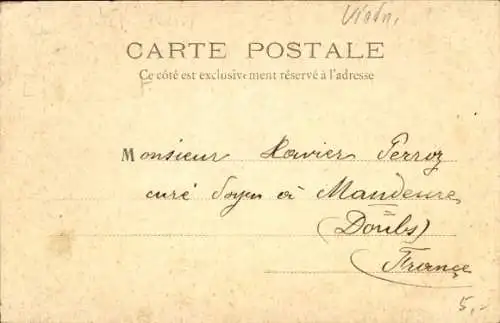 CARTE POSTALE
Ce côté est exclusivement réservé à l'adresse
Monsieur Xavier Perroz
curé doyen à Mandeure
(Doubs)
(France
5,-